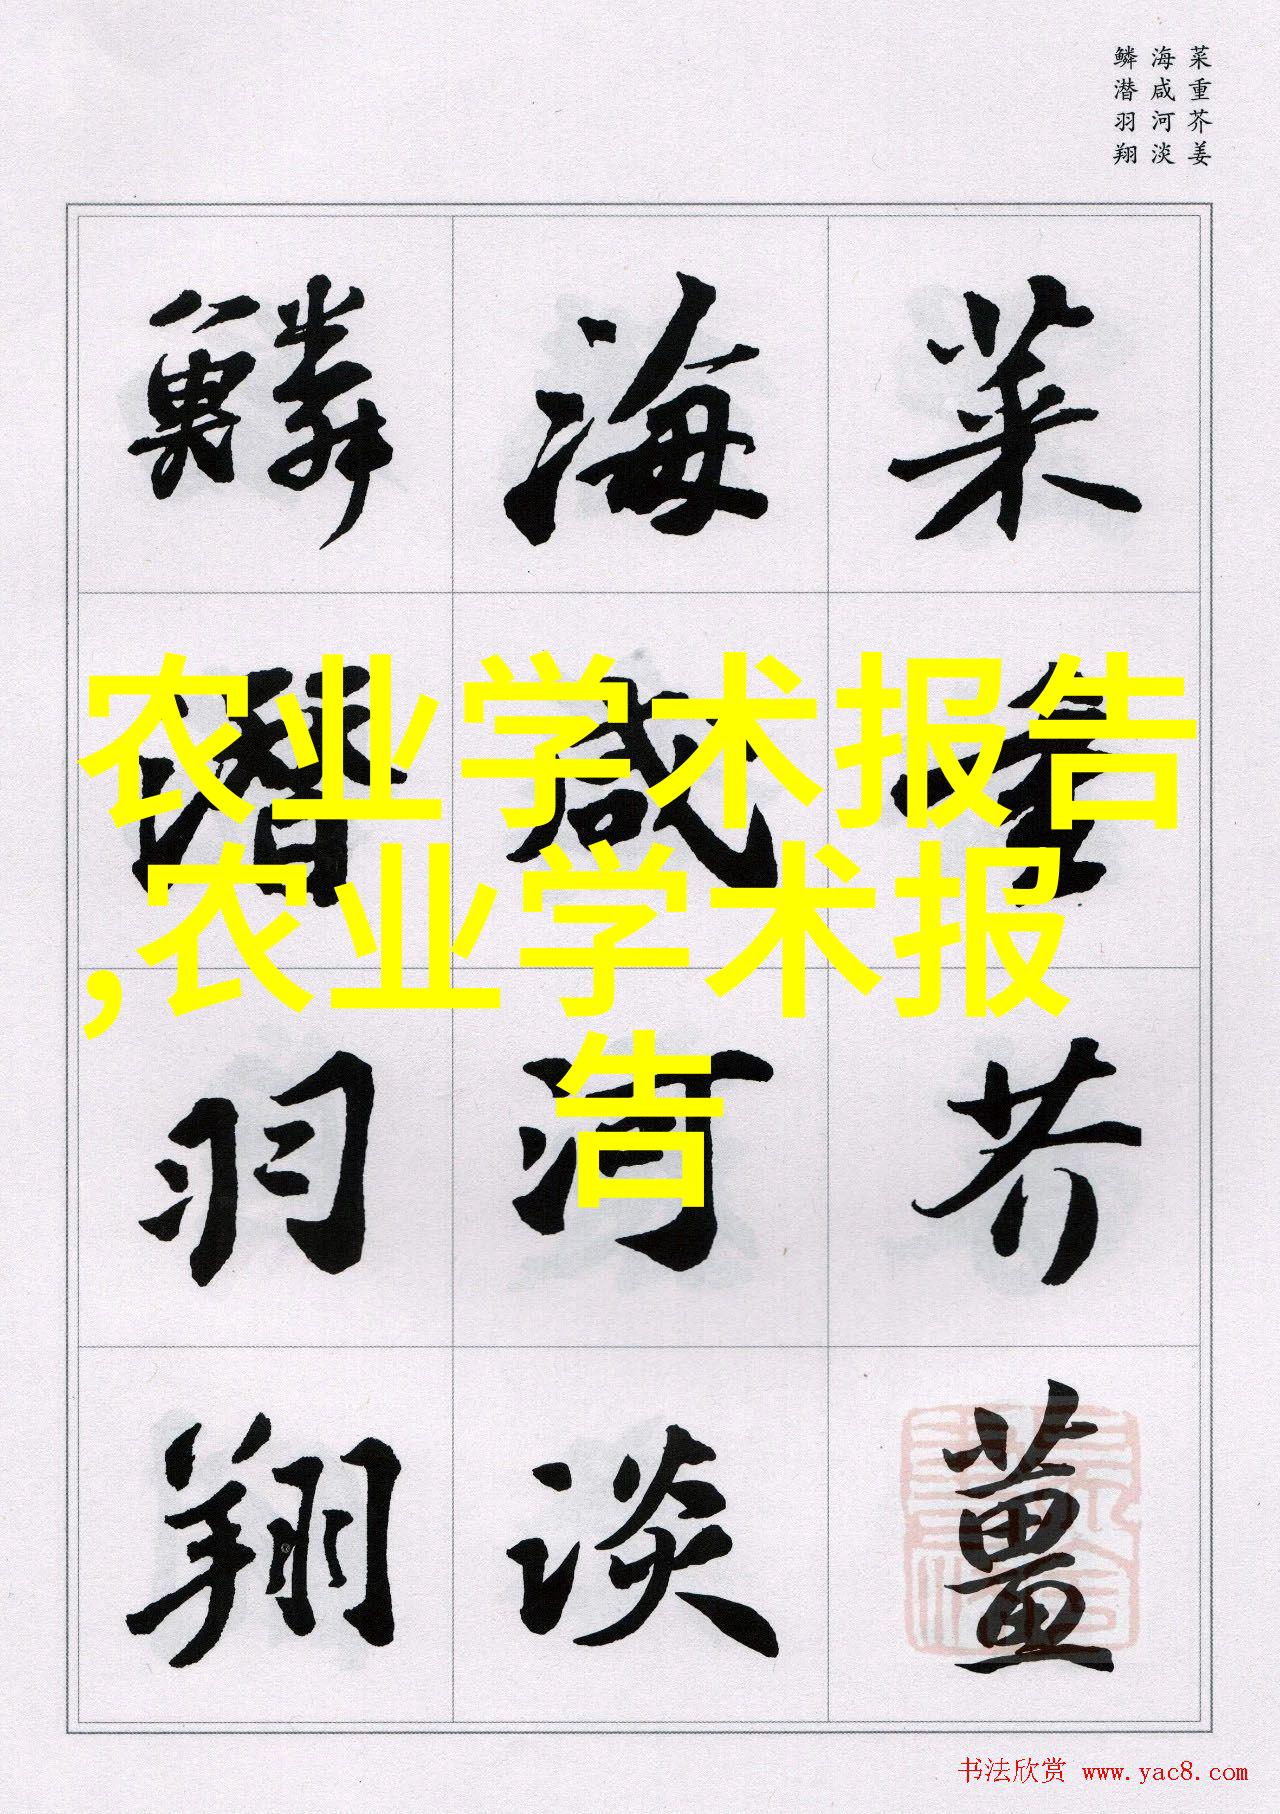 菜重芥姜
海咸河淡
鳞潜羽翔
菜重芥薑
海咸河淡
鱗潛羽翔
农业学术报告
,农业学术报
告
书法欣赏 www.yac8.com